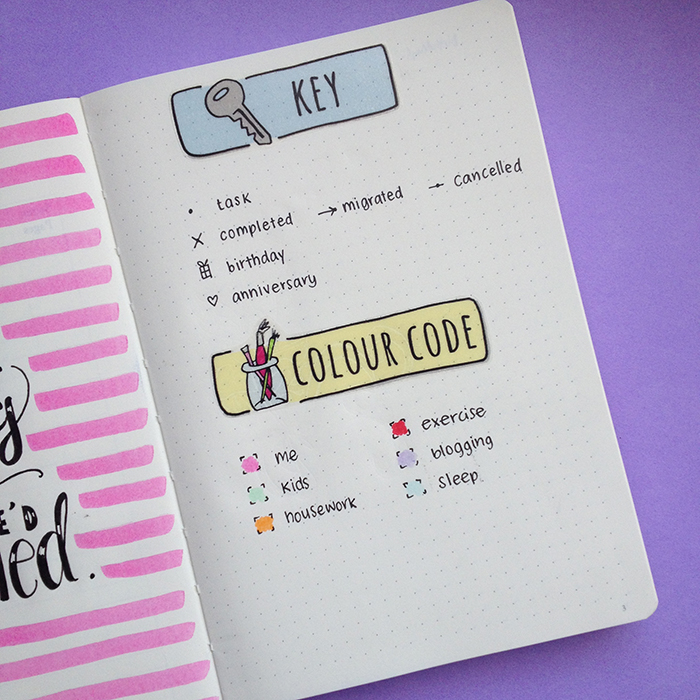 KEY
• task
× completed → migrated cancelled
birthday
♡ anniversary
COLOUR CODE
me exercise
kids blogging
housework sleep